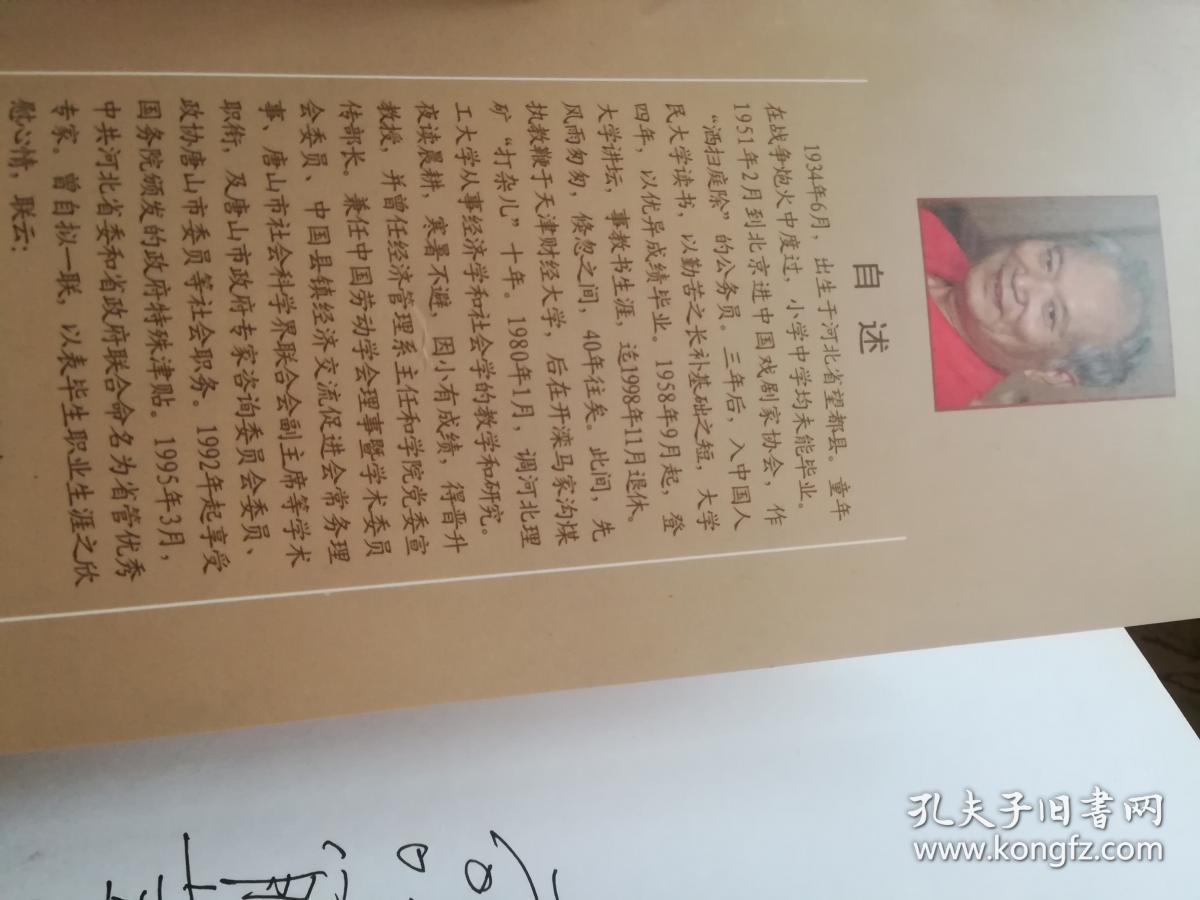 自 述
1934年6月，出生于河北省望都县。童年
在战争炮火中度过，小学中学均未能毕业。
1951年2月到北京进中国戏剧家协会，作
“洒扫庭除”的公务员。三年后，入中国人
民大学读书，以勤苦之长补基础之短，大学
四年，以优异成绩毕业。1958年9月起，登
大学讲坛，事教书生涯，迄1998年11月退休。
风雨匆匆，倏忽之间，40年往矣。此间，先
执教鞭于天津财经大学，后在开滦马家沟煤
矿“打杂儿”十年。1980年1月，调河北理
工大学从事经济学和社会学的教学和研究。
夜读晨耕，寒暑不避，因小有成绩，得晋升
教授，并曾任经济管理系主任和学院党委宣
传部长。兼任中国劳动学会理事暨学术委员
会委员、中国县镇经济交流促进会常务理
事、唐山市社会科学界联合会副主席等学术
职衔，及唐山市政府专家咨询委员会委员、
政协唐山市委员等社会职务。1992年起享受
国务院颁发的政府特殊津贴。1995年3月，
中共河北省委和省政府联合命名为省管优秀
专家。曾自拟一联，以表毕生职业生涯之欣
慰心情，联云：
孔夫子旧书网
www.kongfz.com